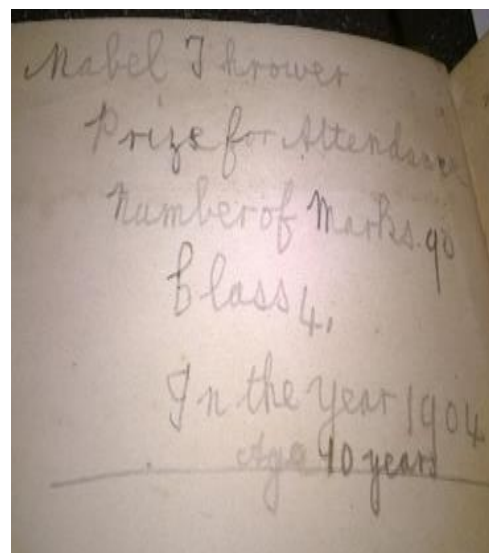 Mabel Thrower
Prize for Attendance
Number of Marks. 90
Class 4.
In the Year 1904
Age 10 years